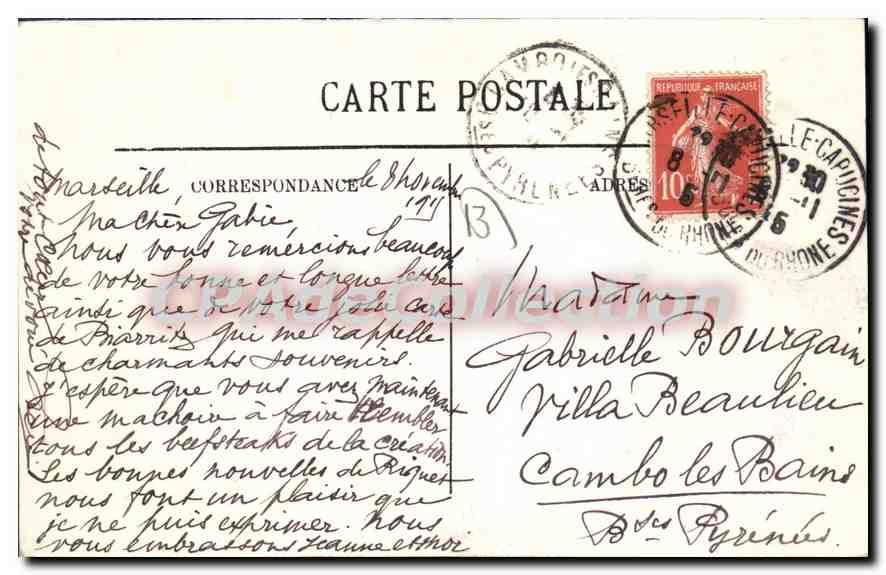 CARTE POSTALE
CORRESPONDANCE
ADRES
REPUBLIQUE FRANÇAISE
10
PYRENEES
MARSEILLE-CAPUCINES
BOUCHES-DU-RHONE
13
Marseille le 8 Novembre
1915
Ma chère Gabie
Nous vous remércions beaucoup
de votre bonne et longue lettre
ainsi que de votre jolie carte
de Biarritz qui me rappelle
de charmants souvenirs.
J'espère que vous avez maintenant
une machoire à faire trembler
tous les beefsteaks de la création.
Les bonnes nouvelles de Riquet
nous font un plaisir que
je ne puis exprimer. Nous
vous embrassons Jeanne et moi
de tout
votre dévoué
Madame
Gabrielle Bourgain
Villa Beaulieu
Cambo les Bains
Bses Pyrénées.
CPA de Collection